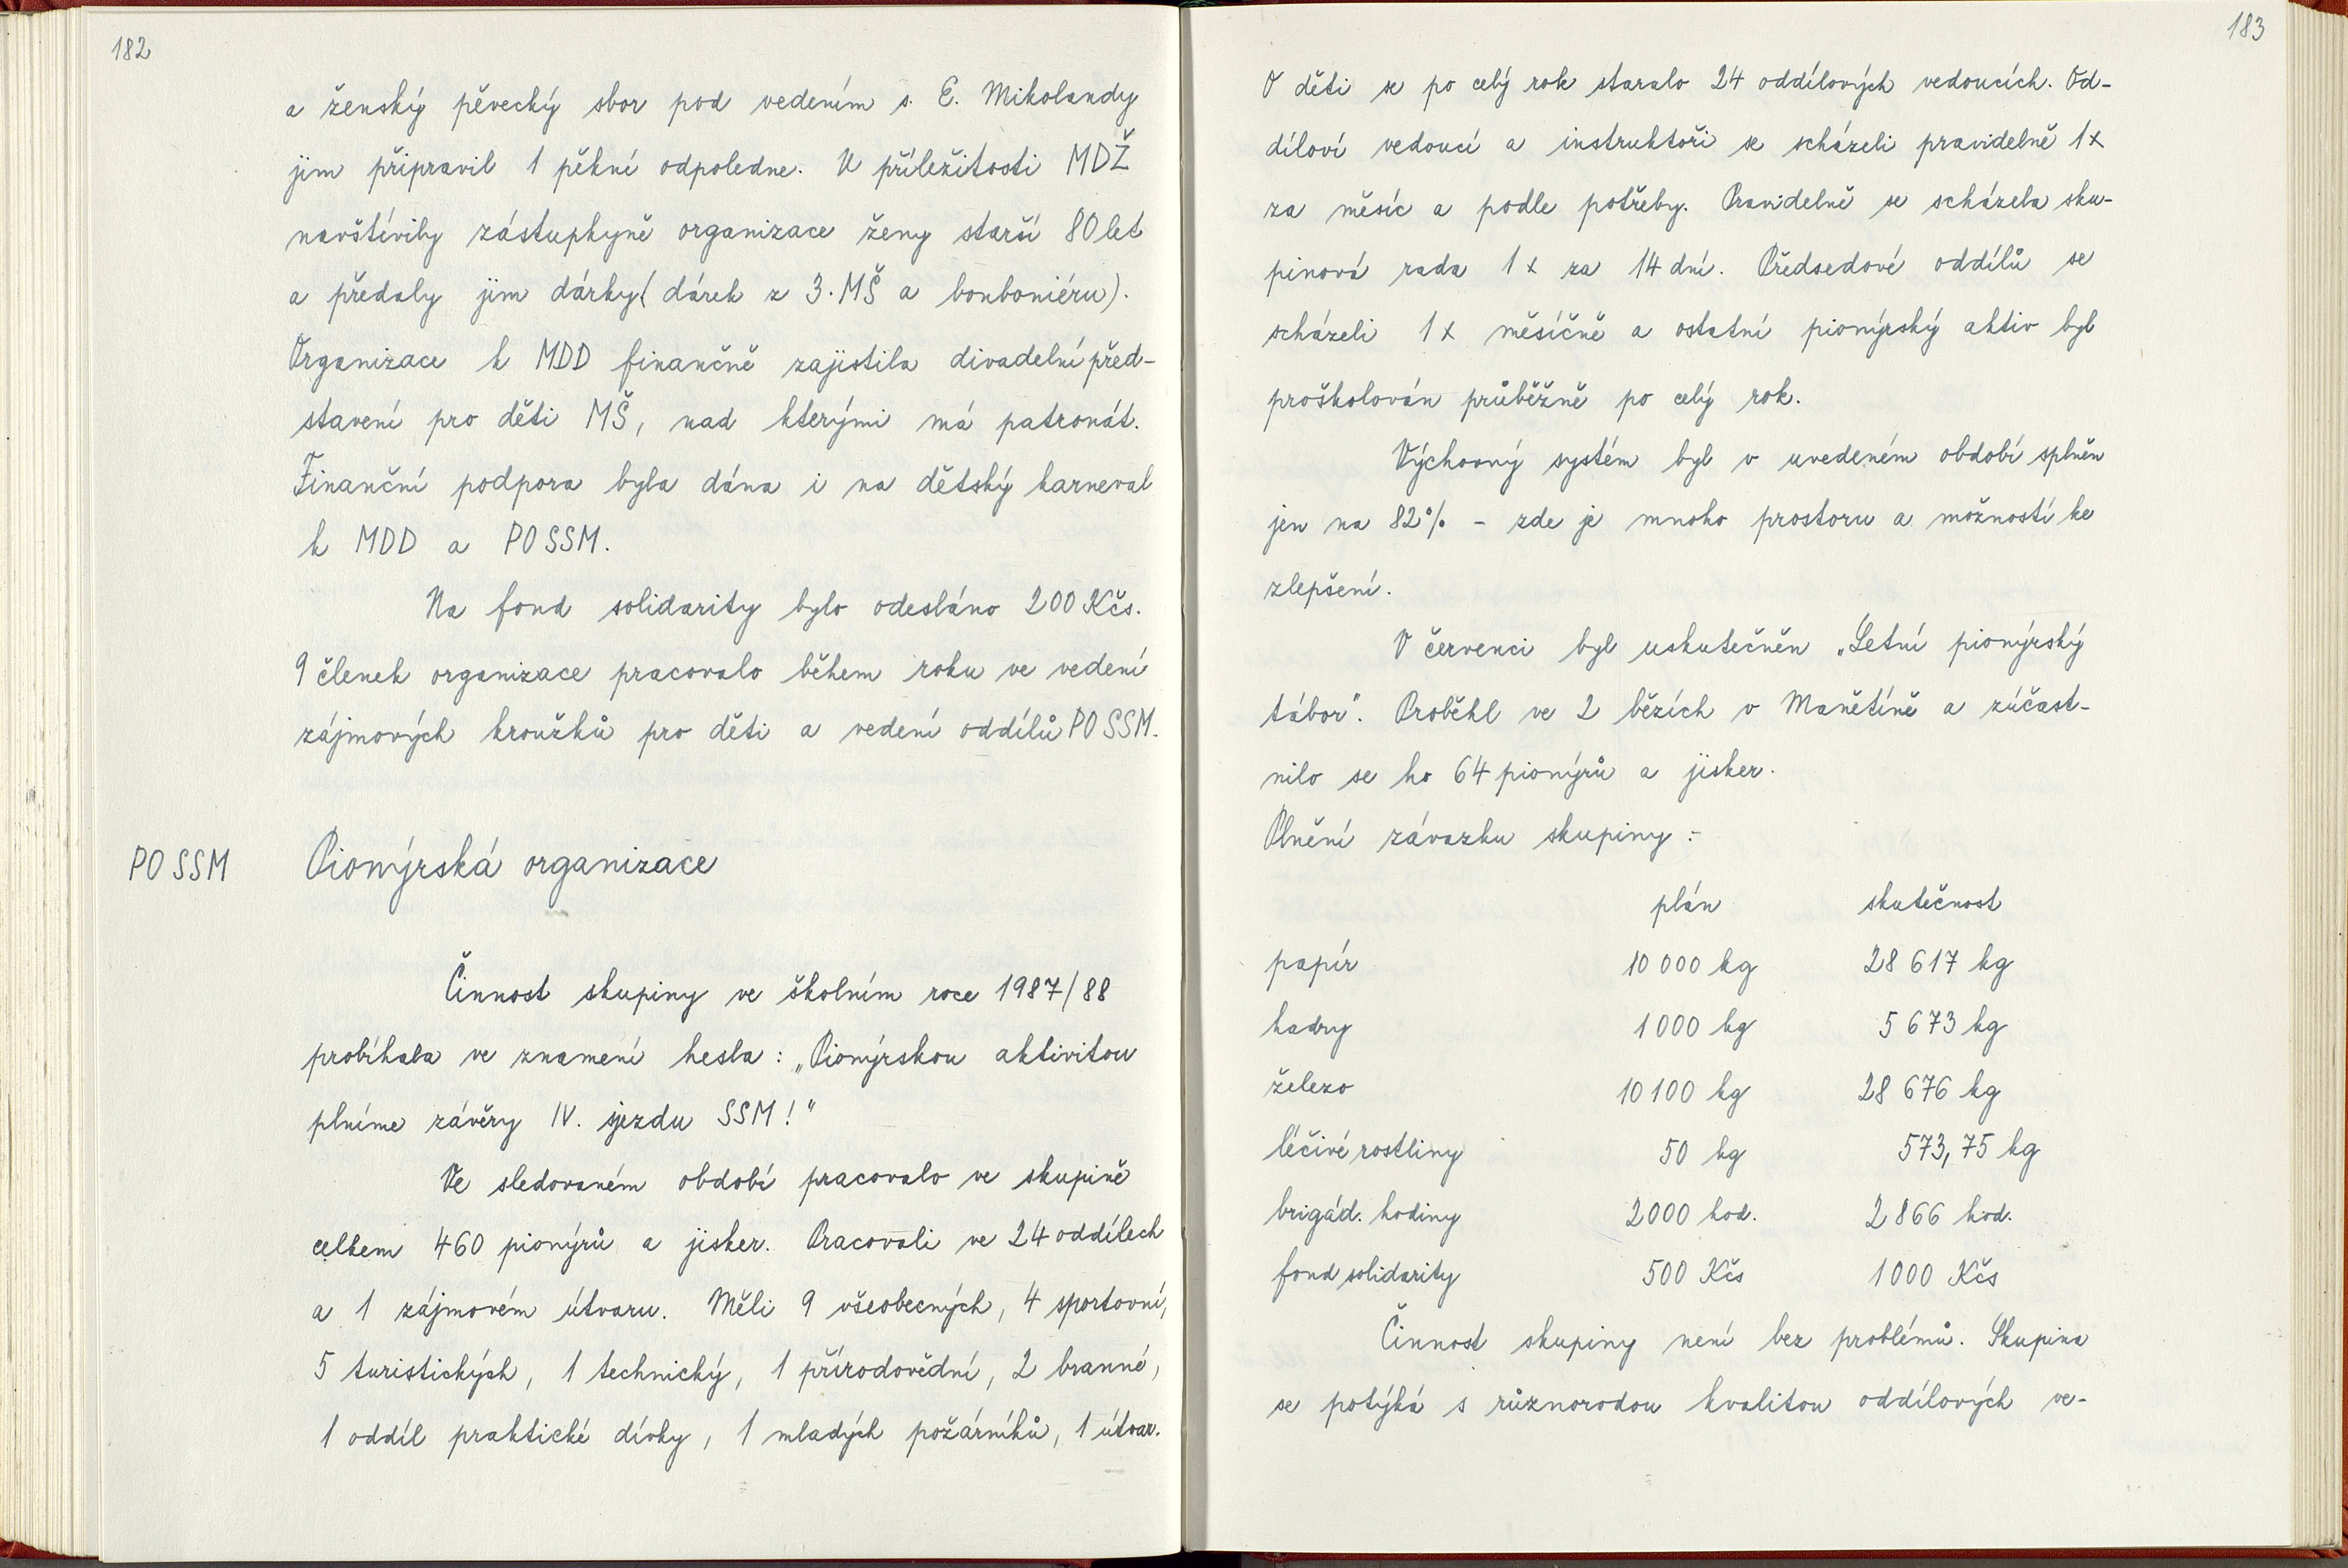 182
a ženský pěvecký sbor pod vedením s. E. Mikolandy
jim připravil 1 pěkné odpoledne. U příležitosti MDŽ
navštívily zástupkyně organizace ženy starší 80 let
a předaly jim dárky (dárek z 3. MŠ a bonboniéru).
Organizace k MDD finančně zajistila divadelní před-
stavení pro děti MŠ, nad kterými má patronát.
Finanční podpora byla dána i na dětský karneval
k MDD a PO SSM.
Na fond solidarity bylo odesláno 200 Kčs.
9 členek organizace pracovalo během roku ve vedení
zájmových kroužků pro děti a vedení oddílů PO SSM.
PO SSM Pionýrská organizace
Činnost skupiny ve školním roce 1987/88
probíhala ve znamení hesla: „Pionýrskou aktivitou
plníme závěry IV. sjezdu SSM!“
Ve sledovaném období pracovalo ve skupině
celkem 460 pionýrů a jisker. Pracovali ve 24 oddílech
a 1 zájmovém útvaru. Měli 9 všeobecných, 4 sportovní,
5 turistických, 1 technický, 1 přírodovědní, 2 branné,
1 oddíl praktické dívky, 1 mladých požárníků, 1 útvar.
183
O děti se po celý rok staralo 24 oddílových vedoucích. Od-
díloví vedoucí a instruktoři se scházeli pravidelně 1x
za měsíc a podle potřeby. Pravidelně se scházela sku-
pinová rada 1x za 14 dní. Předsedové oddílů se
scházeli 1x měsíčně a ostatní pionýrský aktiv byl
proškolován průběžně po celý rok.
Výchovný systém byl v uvedeném období splněn
jen na 82% - zde je mnoho prostoru a možností ke
zlepšení.
V červenci byl uskutečněn „Letní pionýrský
tábor“. Proběhl ve 2 bězích v Manětíně a zúčast-
nilo se ho 64 pionýrů a jisker.
Plnění závazku skupiny:
plán skutečnost
papír 10 000 kg 28 617 kg
hadry 1 000 kg 5 673 kg
železo 10 100 kg 28 676 kg
léčivé rostliny 50 kg 573,75 kg
brigád. hodiny 2000 hod. 2 866 hod.
fond solidarity 500 Kčs 1000 Kčs
Činnost skupiny není bez problémů. Skupina
se potýká s různorodou kvalitou oddílových ve-